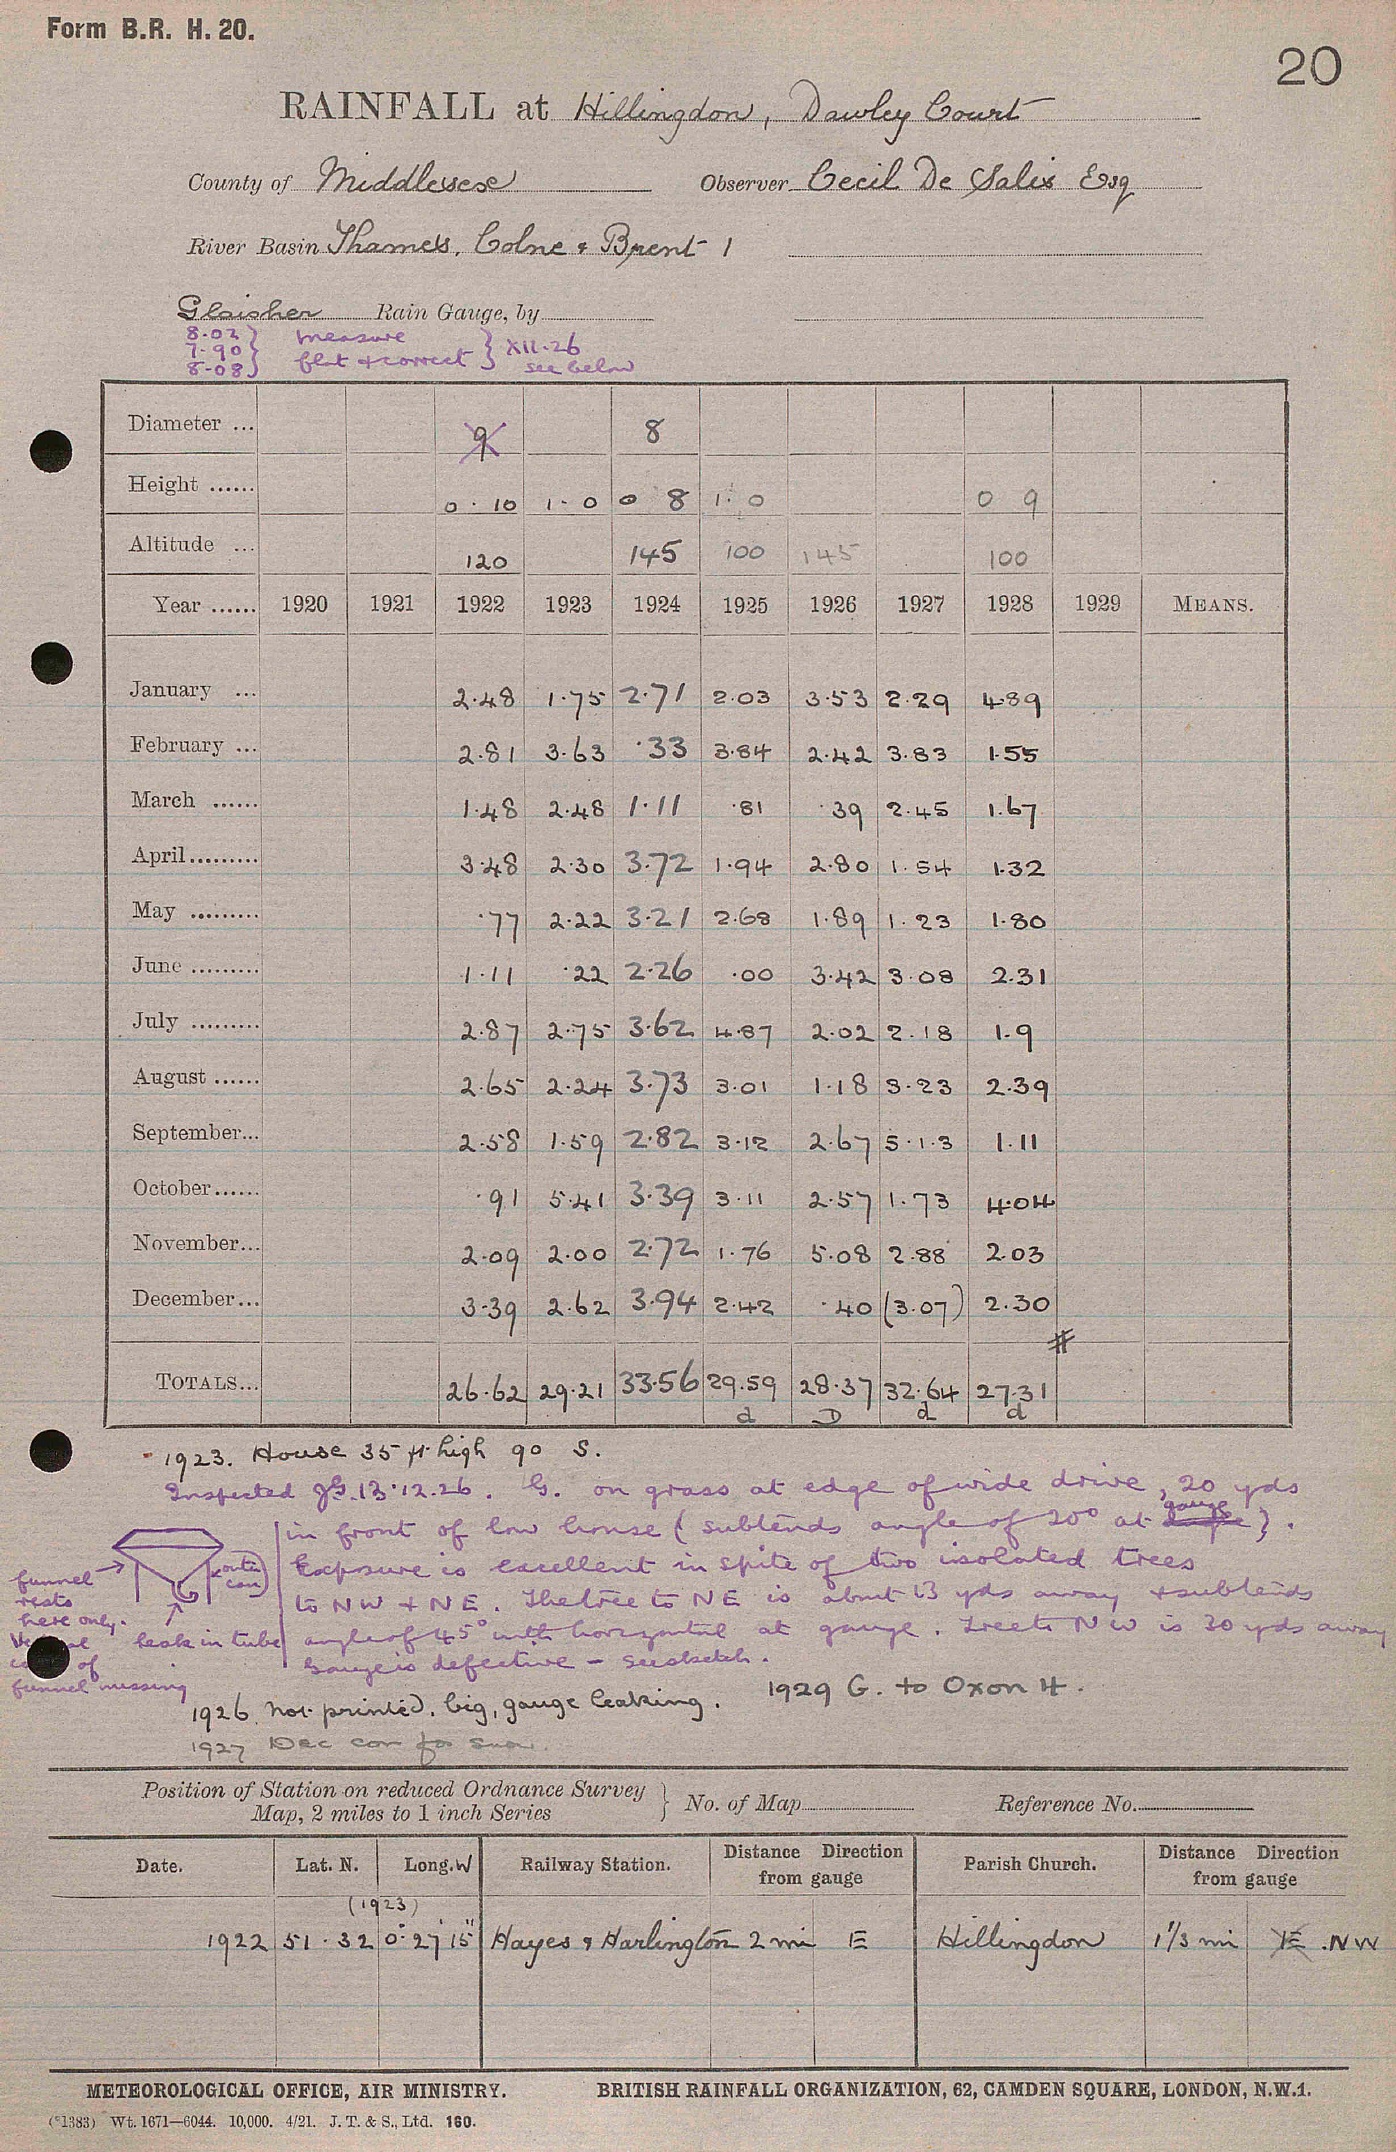 Form B.R. H. 20.
20
RAINFALL at Hillingdon, Dawley Court
County of Middlesex Observer Cecil De Salis Esq
River Basin Thames, Colne & Brent 1
Glaisher Rain Gauge, by
8.02 } measure } XII.26
7.90 } flat & correct } see below
8.08 }
Diameter ... 9 8
Height ...... 0 . 10 1 . 0 0 8 1 . 0 0 9
Altitude ... 120 145 100 145 100
Year ...... 1920 1921 1922 1923 1924 1925 1926 1927 1928 1929 MEANS.
January ... 2.48 1.75 2.71 2.03 3.53 2.29 4.89
February ... 2.81 3.63 .33 3.84 2.42 3.83 1.55
March ...... 1.48 2.48 1.11 .81 .39 2.45 1.67
April ......... 3.48 2.30 3.72 1.94 2.80 1.54 1.32
May ......... .77 2.22 3.21 2.68 1.89 1.23 1.80
June ......... 1.11 .22 2.26 .00 3.42 3.08 2.31
July ......... 2.87 2.75 3.62 4.87 2.02 2.18 1.9
August ...... 2.65 2.24 3.73 3.01 1.18 3.23 2.39
September... 2.58 1.59 2.82 3.12 2.67 5.13 1.11
October...... .91 5.41 3.39 3.11 2.57 1.73 4.04
November... 2.09 2.00 2.72 1.76 5.08 2.88 2.03
December... 3.39 2.62 3.94 2.42 .40 (3.07) 2.30
#
TOTALS... 26.62 29.21 33.56 29.59 28.37 32.64 27.31
d D d d
1923. House 35 ft high 90 S.
Inspected JG.13.12.26. G. on grass at edge of wide drive, 20 yds
in front of low house (subtends angle of 20° at gauge).
Exposure is excellent in spite of two isolated trees
to NW & NE. The tree to NE is about 13 yds away & subtends
angle of 45° with horizontal at gauge. Tree to NW is 30 yds away
Gauge is defective - see sketch.
funnel
rests
here only.
of
funnel missing
outer
can
leak in tube
1926 not printed, big, gauge leaking. 1929 G. to Oxon 4.
1927 Dec corr for snow.
Position of Station on reduced Ordnance Survey
Map, 2 miles to 1 inch Series } No. of Map Reference No.
Date. Lat. N. Long. W Railway Station. Distance Direction from gauge Parish Church. Distance Direction from gauge
(1923)
1922 51 . 32 0° 27' 15" Hayes & Harlington 2 mi E Hillingdon 1 1/3 mi E .NW
METEOROLOGICAL OFFICE, AIR MINISTRY. BRITISH RAINFALL ORGANIZATION, 62, CAMDEN SQUARE, LONDON, N.W.1.
(*1383) Wt. 1671—6044. 10,000. 4/21. J. T. & S., Ltd. 160.